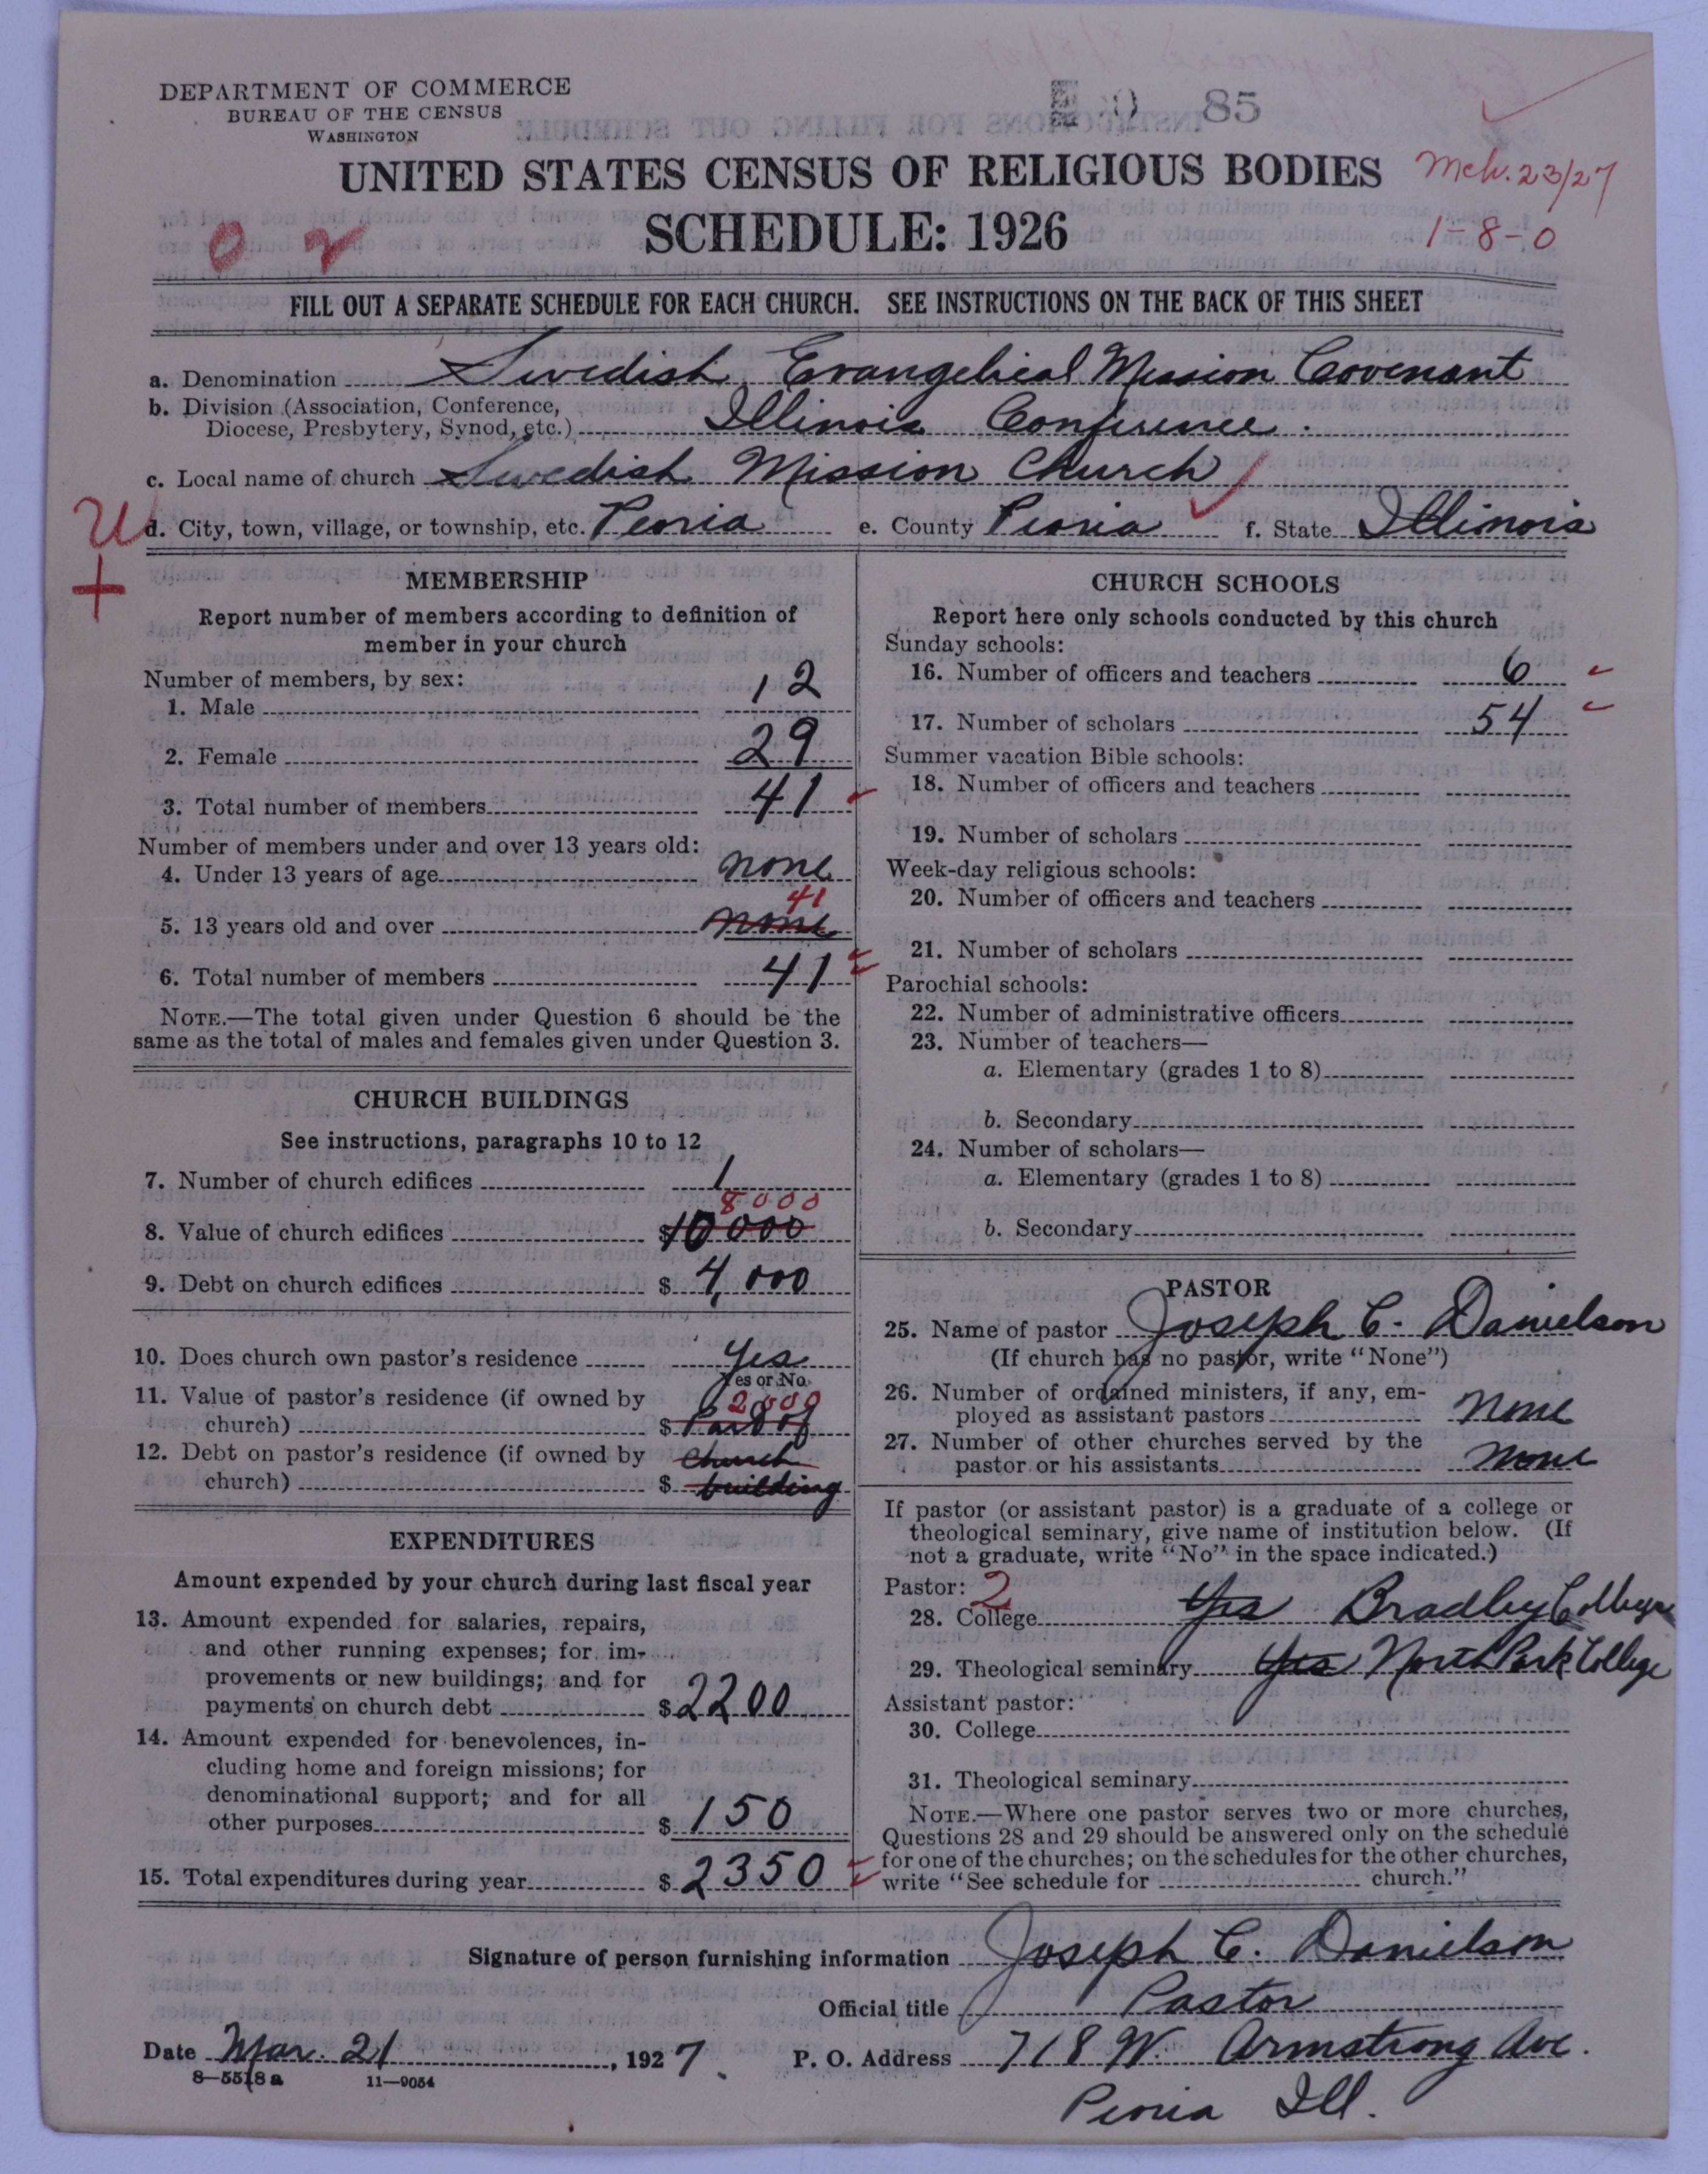 DEPARTMENT OF COMMERCE
BUREAU OF THE CENSUS
WASHINGTON
85
UNITED STATES CENSUS OF RELIGIOUS BODIES
Mch. 23/27
SCHEDULE: 1926
1-8-0
0 2
FILL OUT A SEPARATE SCHEDULE FOR EACH CHURCH. SEE INSTRUCTIONS ON THE BACK OF THIS SHEET
a. Denomination Swedish Evangelical Mission Covenant
b. Division (Association, Conference, Diocese, Presbytery, Synod, etc.) Illinois Conference.
c. Local name of church Swedish Mission Church
U
d. City, town, village, or township, etc. Peoria e. County Peoria f. State Illinois
+
MEMBERSHIP
Report number of members according to definition of
member in your church
Number of members, by sex:
1. Male 12
2. Female 29
3. Total number of members 41
Number of members under and over 13 years old:
4. Under 13 years of age none
41
5. 13 years old and over none
6. Total number of members 41
NOTE.—The total given under Question 6 should be the
same as the total of males and females given under Question 3.
CHURCH BUILDINGS
See instructions, paragraphs 10 to 12
7. Number of church edifices 1
8000
8. Value of church edifices $10000
9. Debt on church edifices $ 4,000
10. Does church own pastor's residence Yes
Yes or No
11. Value of pastor's residence (if owned by
2000
church) $ Part of
12. Debt on pastor's residence (if owned by church
church) $ building
EXPENDITURES
Amount expended by your church during last fiscal year
13. Amount expended for salaries, repairs,
and other running expenses; for im-
provements or new buildings; and for
payments on church debt $2200
14. Amount expended for benevolences, in-
cluding home and foreign missions; for
denominational support; and for all
other purposes $ 150
15. Total expenditures during year $ 2350
CHURCH SCHOOLS
Report here only schools conducted by this church
Sunday schools:
16. Number of officers and teachers 6
17. Number of scholars 54
Summer vacation Bible schools:
18. Number of officers and teachers
19. Number of scholars
Week-day religious schools:
20. Number of officers and teachers
21. Number of scholars
Parochial schools:
22. Number of administrative officers
23. Number of teachers—
a. Elementary (grades 1 to 8)
b. Secondary
24. Number of scholars—
a. Elementary (grades 1 to 8)
b. Secondary
PASTOR
25. Name of pastor Joseph C. Danielson
(If church has no pastor, write "None")
26. Number of ordained ministers, if any, em-
ployed as assistant pastors None
27. Number of other churches served by the
pastor or his assistants None
If pastor (or assistant pastor) is a graduate of a college or
theological seminary, give name of institution below. (If
not a graduate, write "No" in the space indicated.)
Pastor: 2
28. College Yes Bradley College
29. Theological seminary Yes North Park College
Assistant pastor:
30. College
31. Theological seminary
NOTE.—Where one pastor serves two or more churches,
Questions 28 and 29 should be answered only on the schedule
for one of the churches; on the schedules for the other churches,
write "See schedule for church."
Signature of person furnishing information Joseph C. Danielson
Official title Pastor
Date Mar. 21, 1927. P. O. Address 718 W. Armstrong Ave.
8—5518a 11—9054
Peoria Ill.